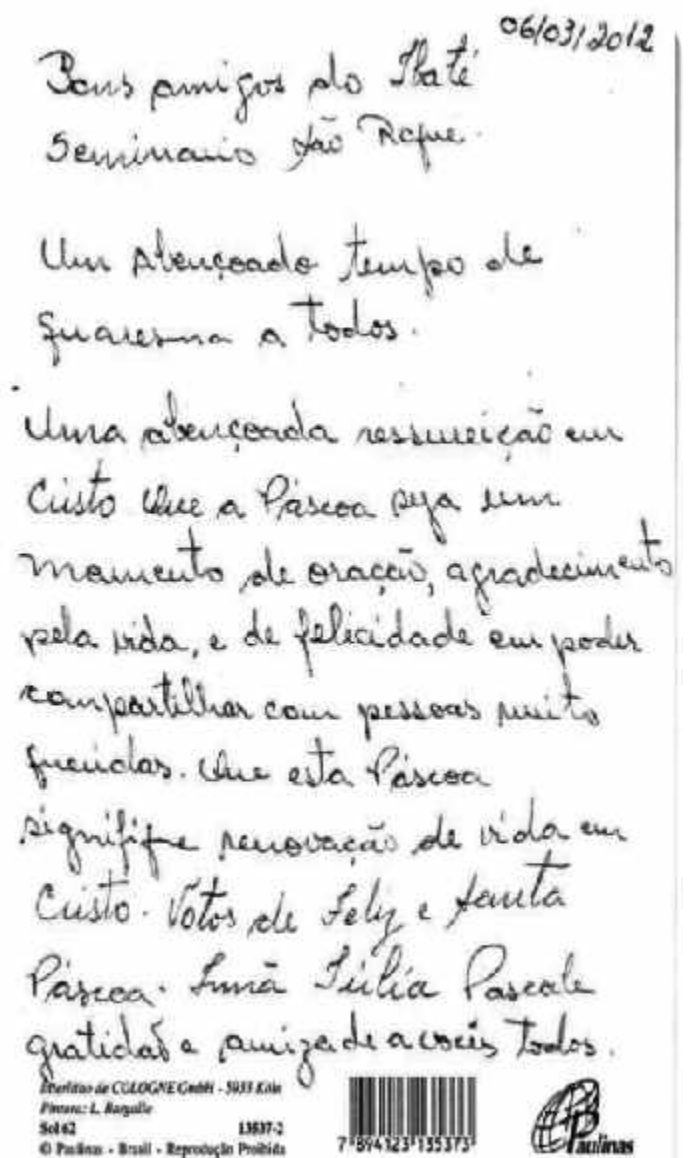 06/03/2012
Bons amigos do Ibaté
Seminario são Roque.
Um Abençoado tempo de
quaresma a todos.
Uma abençoada ressureição em
Cristo Que a Páscoa seja um
momento de oração, agradecimento
pela vida, e de felicidade em poder
compartilhar com pessoas muito
queridas. Que esta Páscoa
signifique renovação de vida em
Cristo. Votos de Feliz e santa
Páscoa. Irmã Júlia Pascale
gratidão e amizade a voceis todos.
de COLOGNE GmbH - 5033 Köln
Pintora: L. Bargalle
Sol 62 13537-2
© Paulinas - Brasil - Reprodução Proibida
7 894123 135373
Paulinas